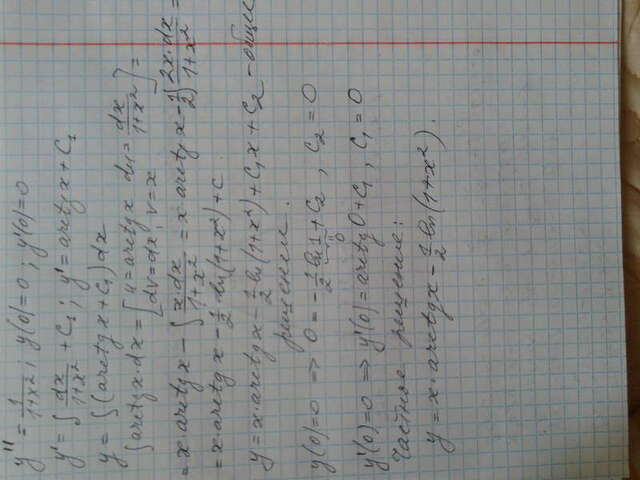 y'' = 1/(1+x²); y(0)=0; y'(0)=0
y' = ∫ dx/(1+x²) + C₁; y' = arctg x + C₁
y = ∫ (arctg x + C₁) dx
∫ arctg x · dx = [u = arctg x du = dx/(1+x²) dv = dx; v = x] =
= x · arctg x − ∫ x dx/(1+x²) = x · arctg x − 1/2 ∫ 2x · dx/(1+x²) =
= x · arctg x − 1/2 ln(1+x²) + C
y = x · arctg x − 1/2 ln(1+x²) + C₁x + C₂ – общее
решение.
y(0)=0 => 0 = −1/2 ln 1 + C₂, C₂ = 0
0
y'(0)=0 => y'(0) = arctg 0 + C₁, C₁ = 0
Частное решение:
y = x · arctg x − 1/2 ln(1+x²).